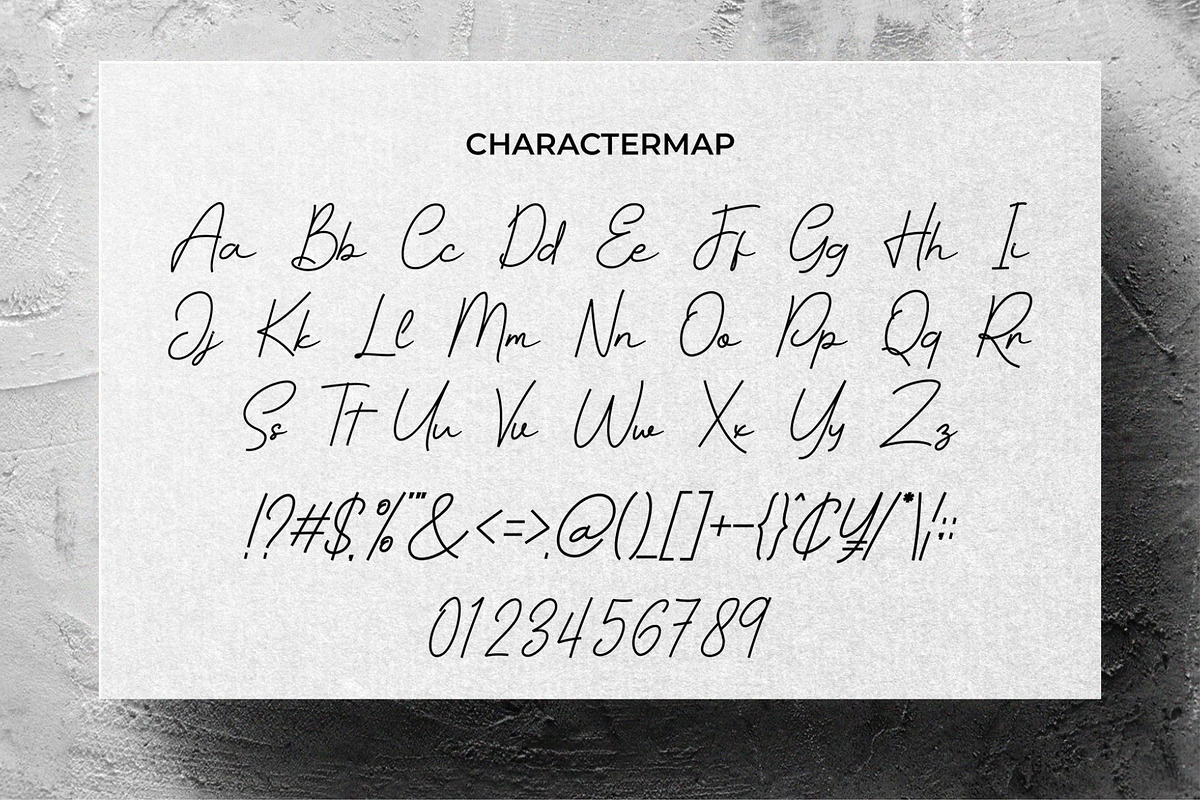 CHARACTERMAP
Aa Bb Cc Dd Ee Ff Gg Hh Ii
Jj Kk Ll Mm Nn Oo Pp Qq Rr
Ss Tt Uu Vv Ww Xx Yy Zz
!?#$.%"'&<=>.@()_[]+-{}^₵¥/*\|¡:;
0123456789